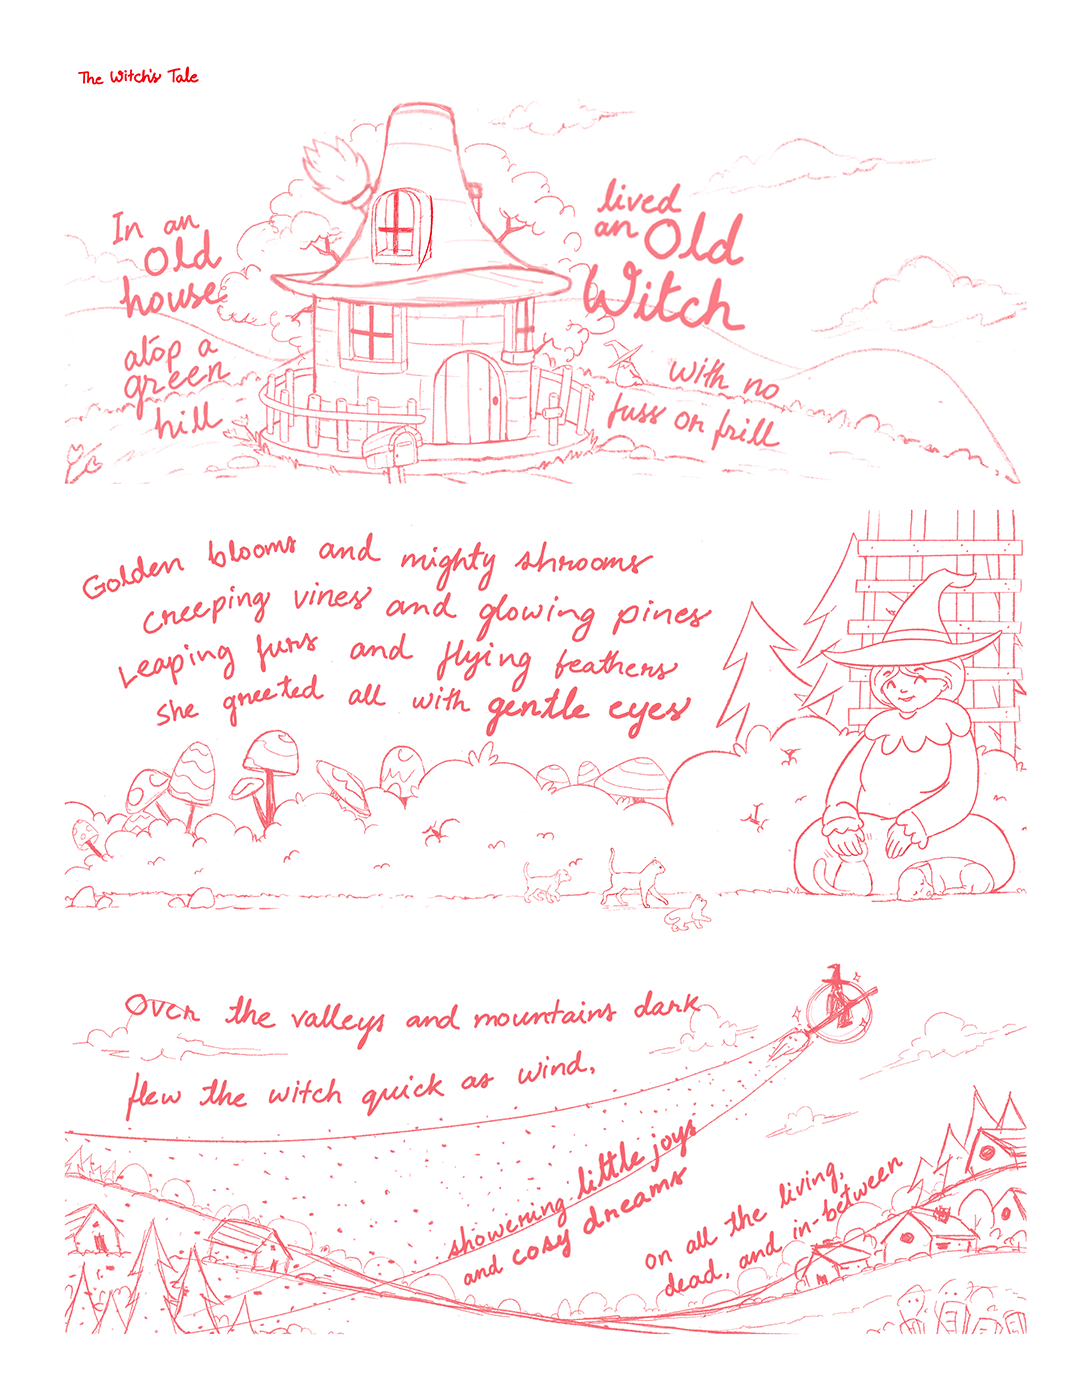 The Witch's Tale
In an
Old
house
atop a
green
hill
lived
an Old
Witch
with no
fuss or frill
Golden blooms and mighty shrooms
creeping vines and glowing pines
Leaping furs and flying feathers
she greeted all with gentle eyes
Over the valleys and mountains dark
flew the witch quick as wind,
showering little joys
and cosy dreams
on all the living,
dead, and in-between